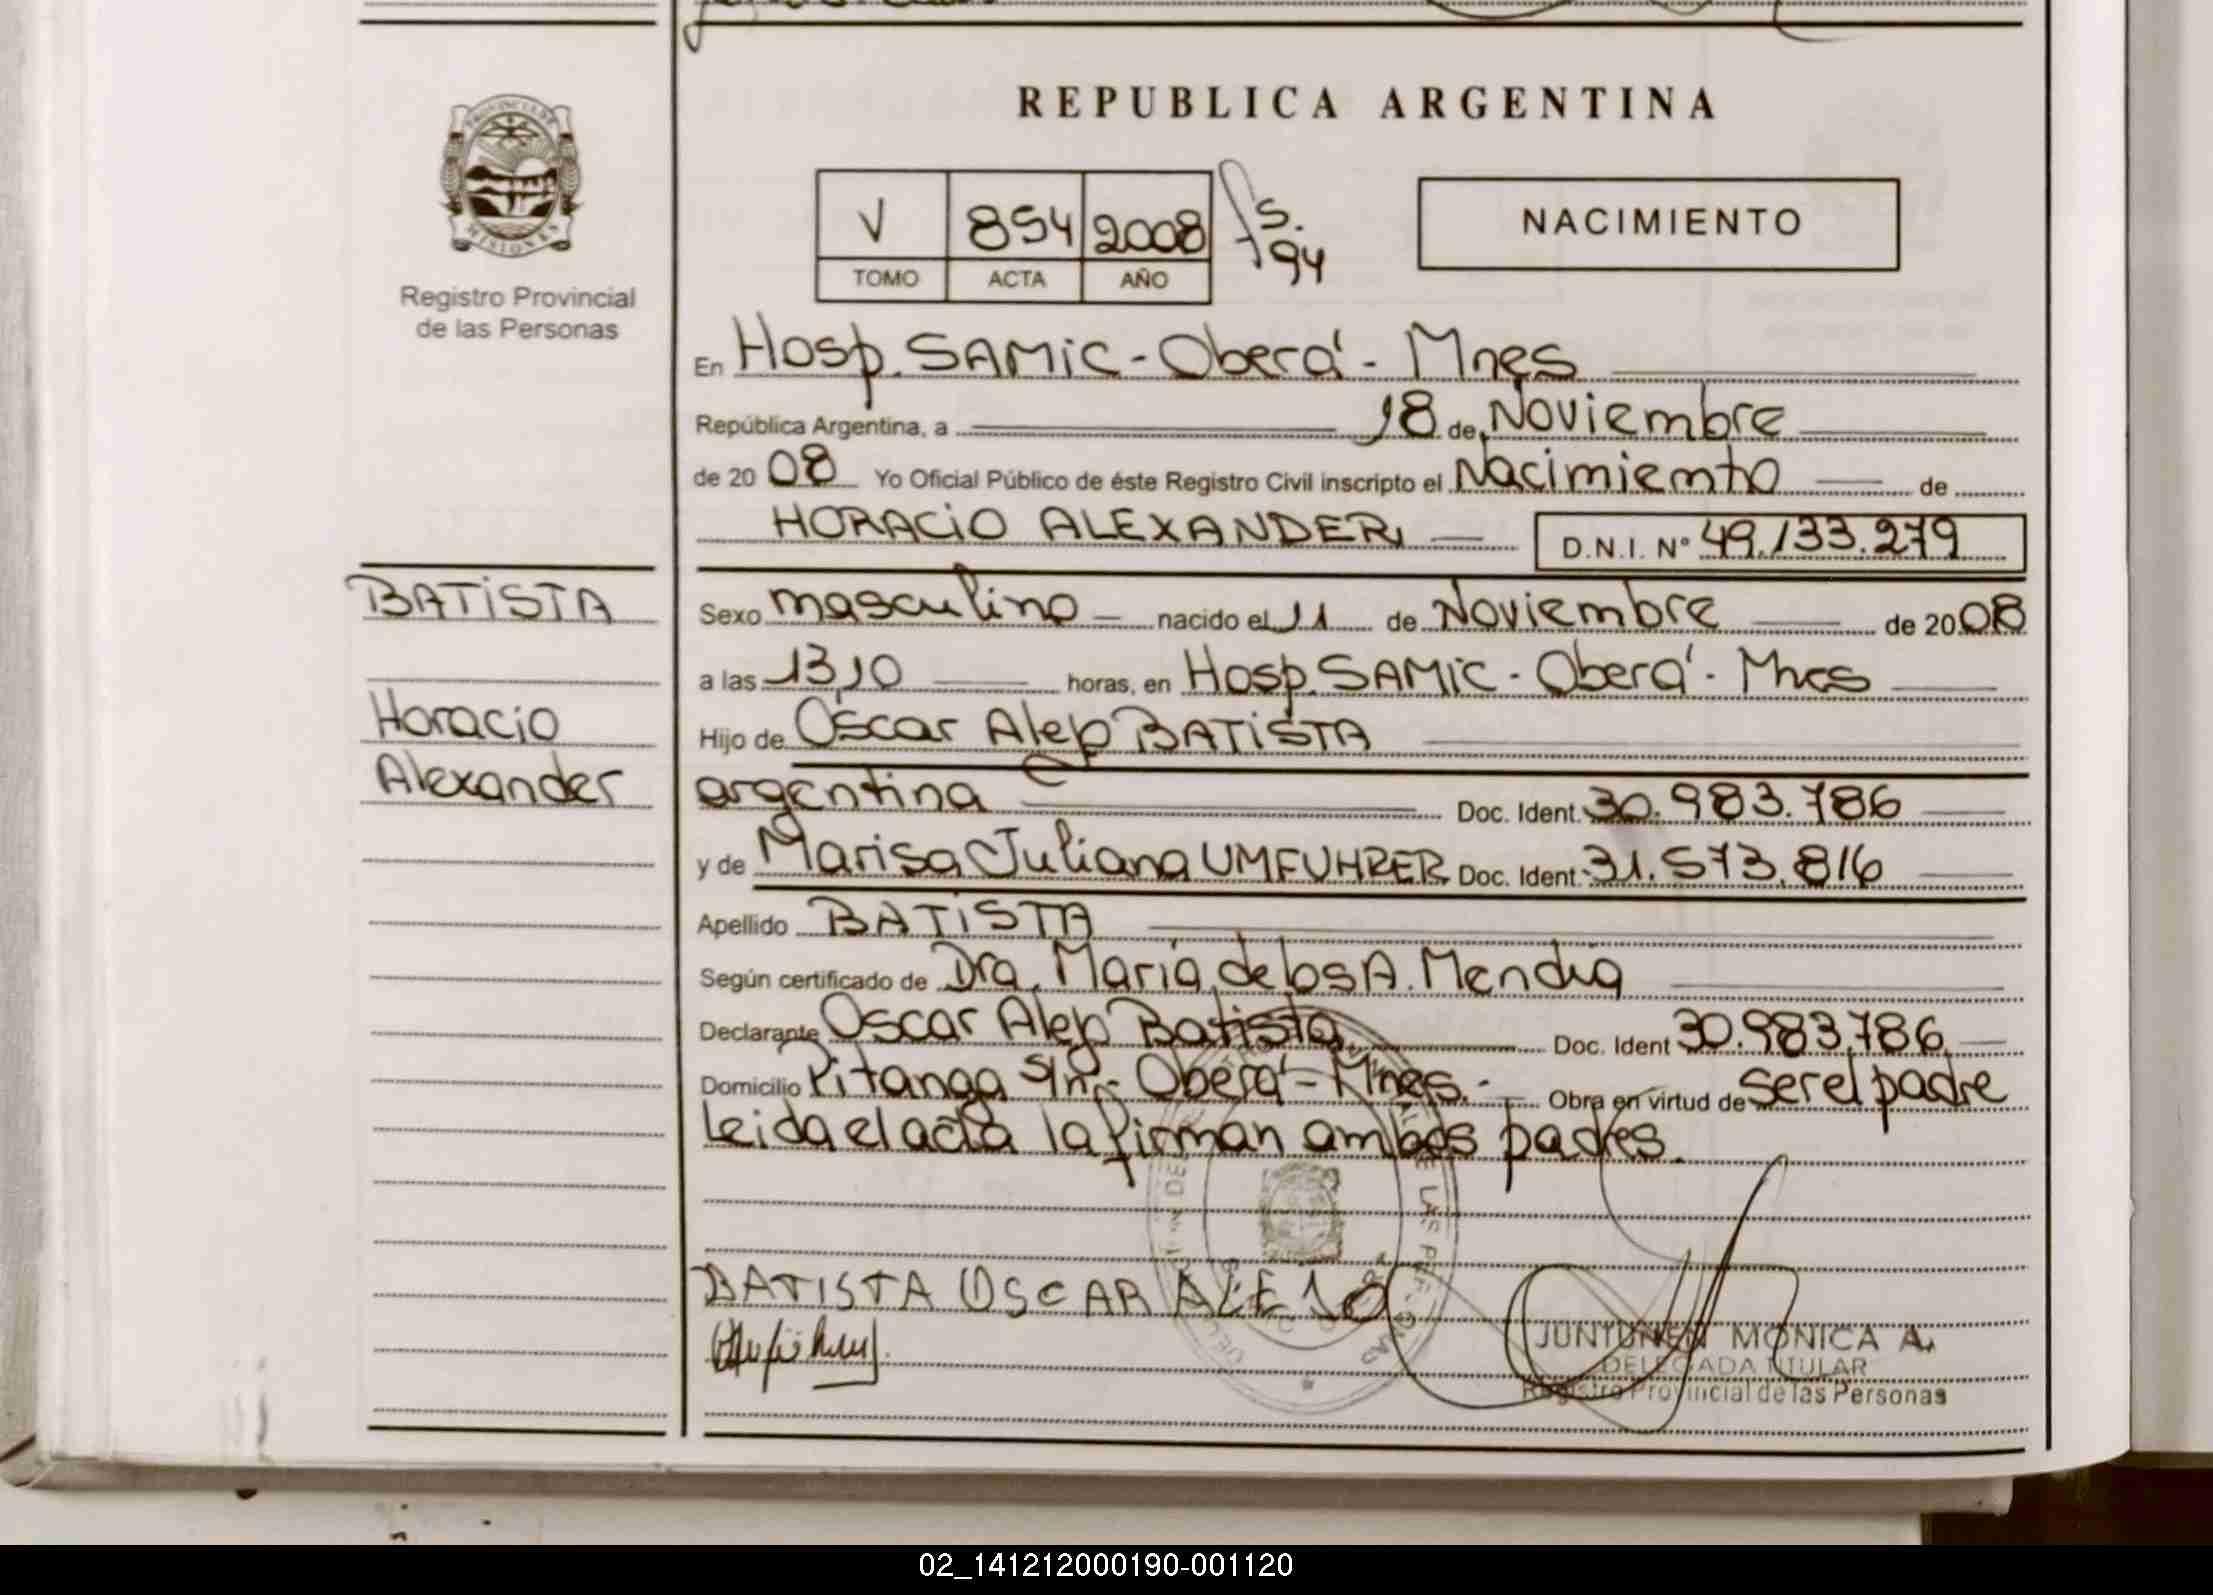 REPUBLICA ARGENTINA
PROVINCIA DE MISIONES
Registro Provincial
de las Personas
V 854 2008 fs. 94
TOMO ACTA AÑO
NACIMIENTO
En Hosp. SAMIC - Oberá - Mnes
República Argentina, a 18 de Noviembre
de 2008 Yo Oficial Público de éste Registro Civil inscripto el Nacimiento de
HORACIO ALEXANDER D.N.I. Nº 49.133.279
BATISTA
Horacio
Alexander
Sexo masculino nacido el 11 de Noviembre de 2008
a las 13,10 horas, en Hosp. SAMIC - Oberá - Mnes
Hijo de Oscar Alejo BATISTA
argentina Doc. Ident. 30.983.786
y de Marisa Juliana UMFUHRER Doc. Ident. 31.573.816
Apellido BATISTA
Según certificado de Dra. María de los A. Mendia
Declarante Oscar Alejo Batista Doc. Ident 30.983.786
Domicilio Pitanga s/nº - Oberá - Mnes. - Obra en virtud de ser el padre
Leida el acta la firman ambos padres.
BATISTA OSCAR ALEJO
JUNTUNEN MONICA A.
DELEGADA TITULAR
Registro Provincial de las Personas
02_141212000190-001120